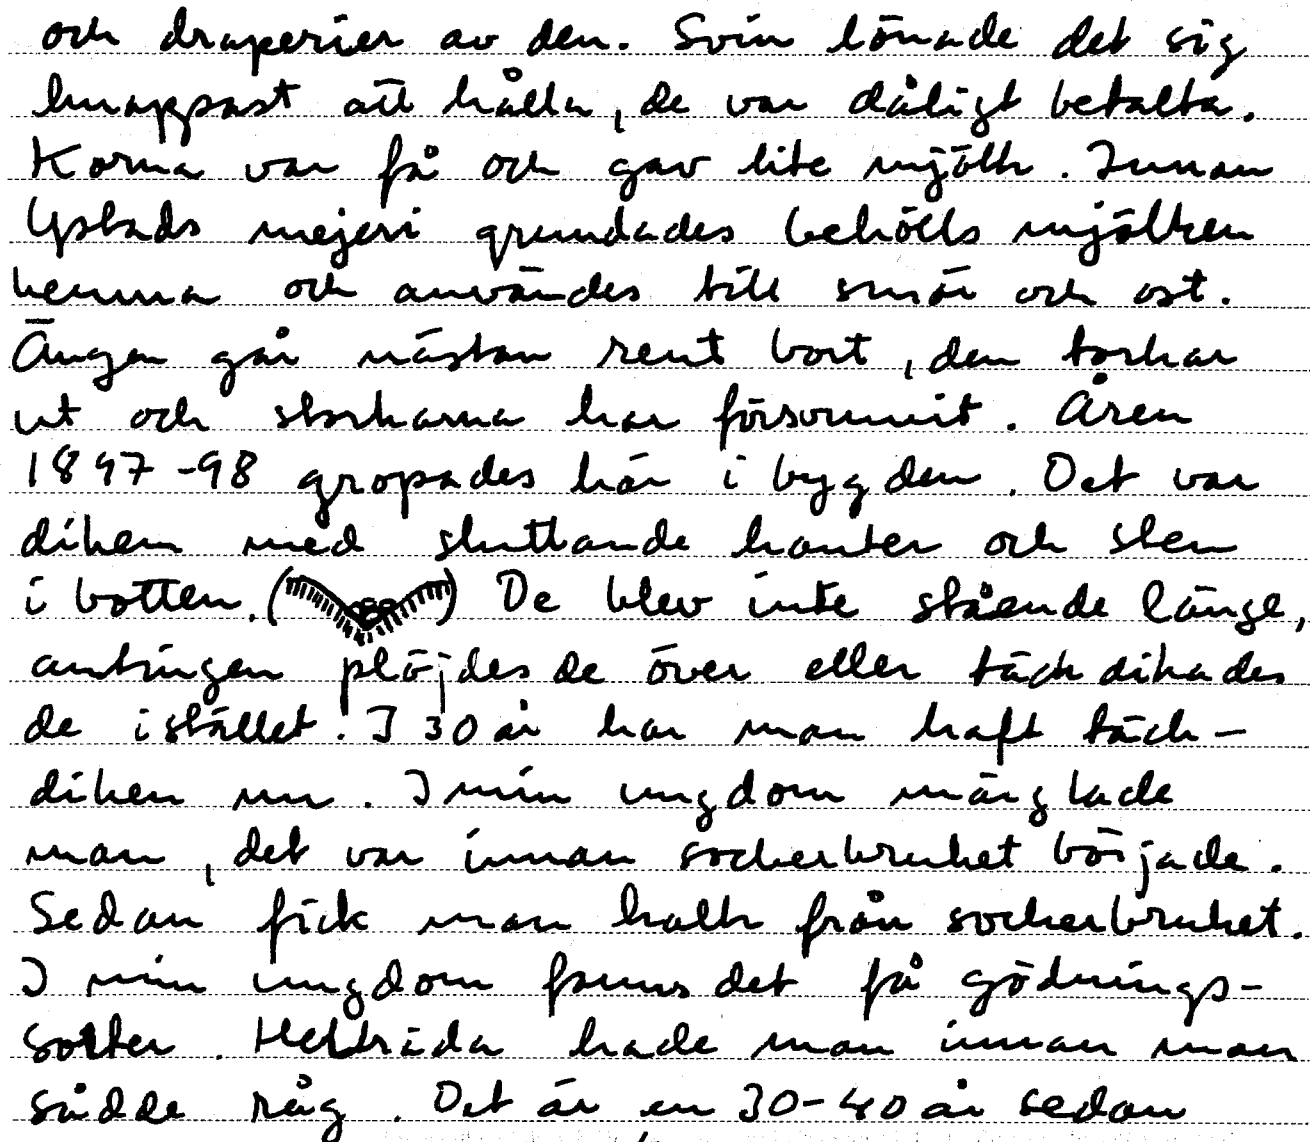 och draperier av den. Svin lönade det sig
knappast att hålla, de var dåligt betalta.
Korna var få och gav lite mjölk. Innan
Ystads mejeri grundades behölls mjölken
hemma och användes till smör och ost.
Ängen går nästan rent bort, den torkar
ut och storkarna har försvunnit. Åren
1897-98 gropades här i bygden. Det var
diken med sluttande kanter och sten
i botten. ( ) De blev inte stående länge,
antingen plöjdes de över eller täckdikades
de istället. I 30 år har man haft täck-
diken nu. I min ungdom märglade
man, det var innan sockerbruket började.
Sedan fick man kalk från sockerbruket.
I min ungdom fanns det få gödnings-
sorter. Helträda hade man innan man
sådde råg. Det är en 30-40 år sedan